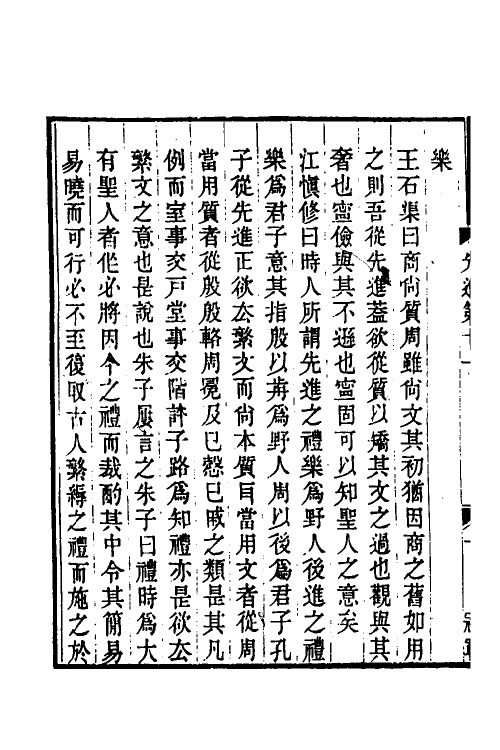 先進第十一
樂
王石渠曰商尙質周雖尙文其初猶因商之舊如用
之則吾從先進蓋欲從質以矯其文之過也觀與其
奢也寧儉與其不遜也寧固可以知聖人之意矣
江愼修曰時人所謂先進之禮樂爲野人後進之禮
樂爲君子意其指殷以前爲野人周以後爲君子孔
子從先進正欲去繁文而尙本質耳當用文者從周
當用質者從殷殷輅周冕及已慤已戚之類是其凡
例而室事交戸堂事交階許子路爲知禮亦是欲去
繁文之意也是說也朱子屢言之朱子曰禮時爲大
有聖人者作必將因今之禮而裁酌其中令其簡易
易曉而可行必不至復取古人繁縟之禮而施之於